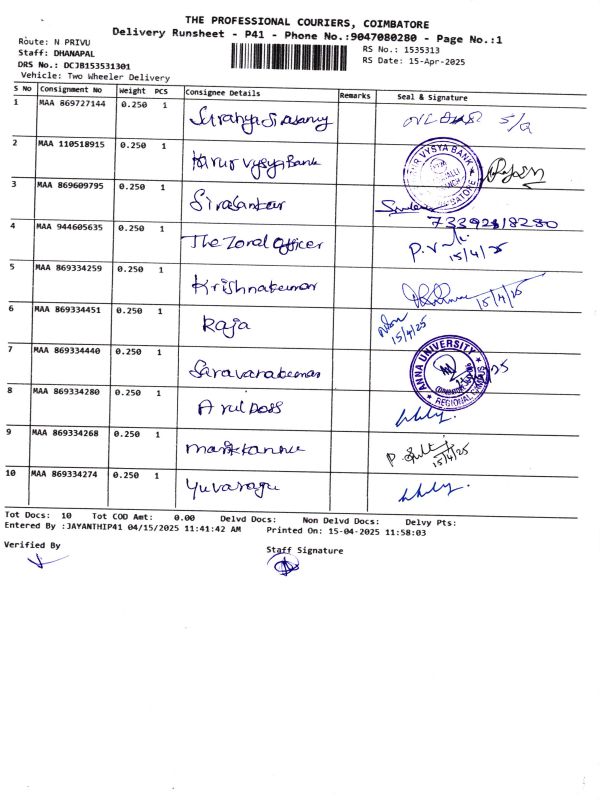 THE PROFESSIONAL COURIERS, COIMBATORE
Delivery Runsheet - P41 - Phone No.:9047080280 - Page No.:1
Route: N PRIVU
RS No.: 1535313
Staff: DHANAPAL
RS Date: 15-Apr-2025
DRS No.: DCJB153531301
Vehicle: Two Wheeler Delivery
S No Consignment No Weight PCS Consignee Details Remarks Seal & Signature
1 MAA 869727144 0.250 1
2 MAA 110518915 0.250 1 Karur Vysya Bank
VYSYA BANK
3 MAA 869609795 0.250 1 Sivasankar
7339218280
4 MAA 944605635 0.250 1 The Zonal Officer
15/4/25
5 MAA 869334259 0.250 1 Krishnakumar 15/4/25
6 MAA 869334451 0.250 1 Raja
15/4/25
7 MAA 869334440 0.250 1 Saravanakumar
ANNA UNIVERSITY
REGIONAL CAMPUS
8 MAA 869334280 0.250 1 Arul Doss
9 MAA 869334268 0.250 1
15/4/25
10 MAA 869334274 0.250 1 Yuvaraju
Tot Docs: 10 Tot COD Amt: 0.00 Delvd Docs: Non Delvd Docs: Delvy Pts:
Entered By :JAYANTHIP41 04/15/2025 11:41:42 AM Printed On: 15-04-2025 11:58:03
Verified By
Staff Signature